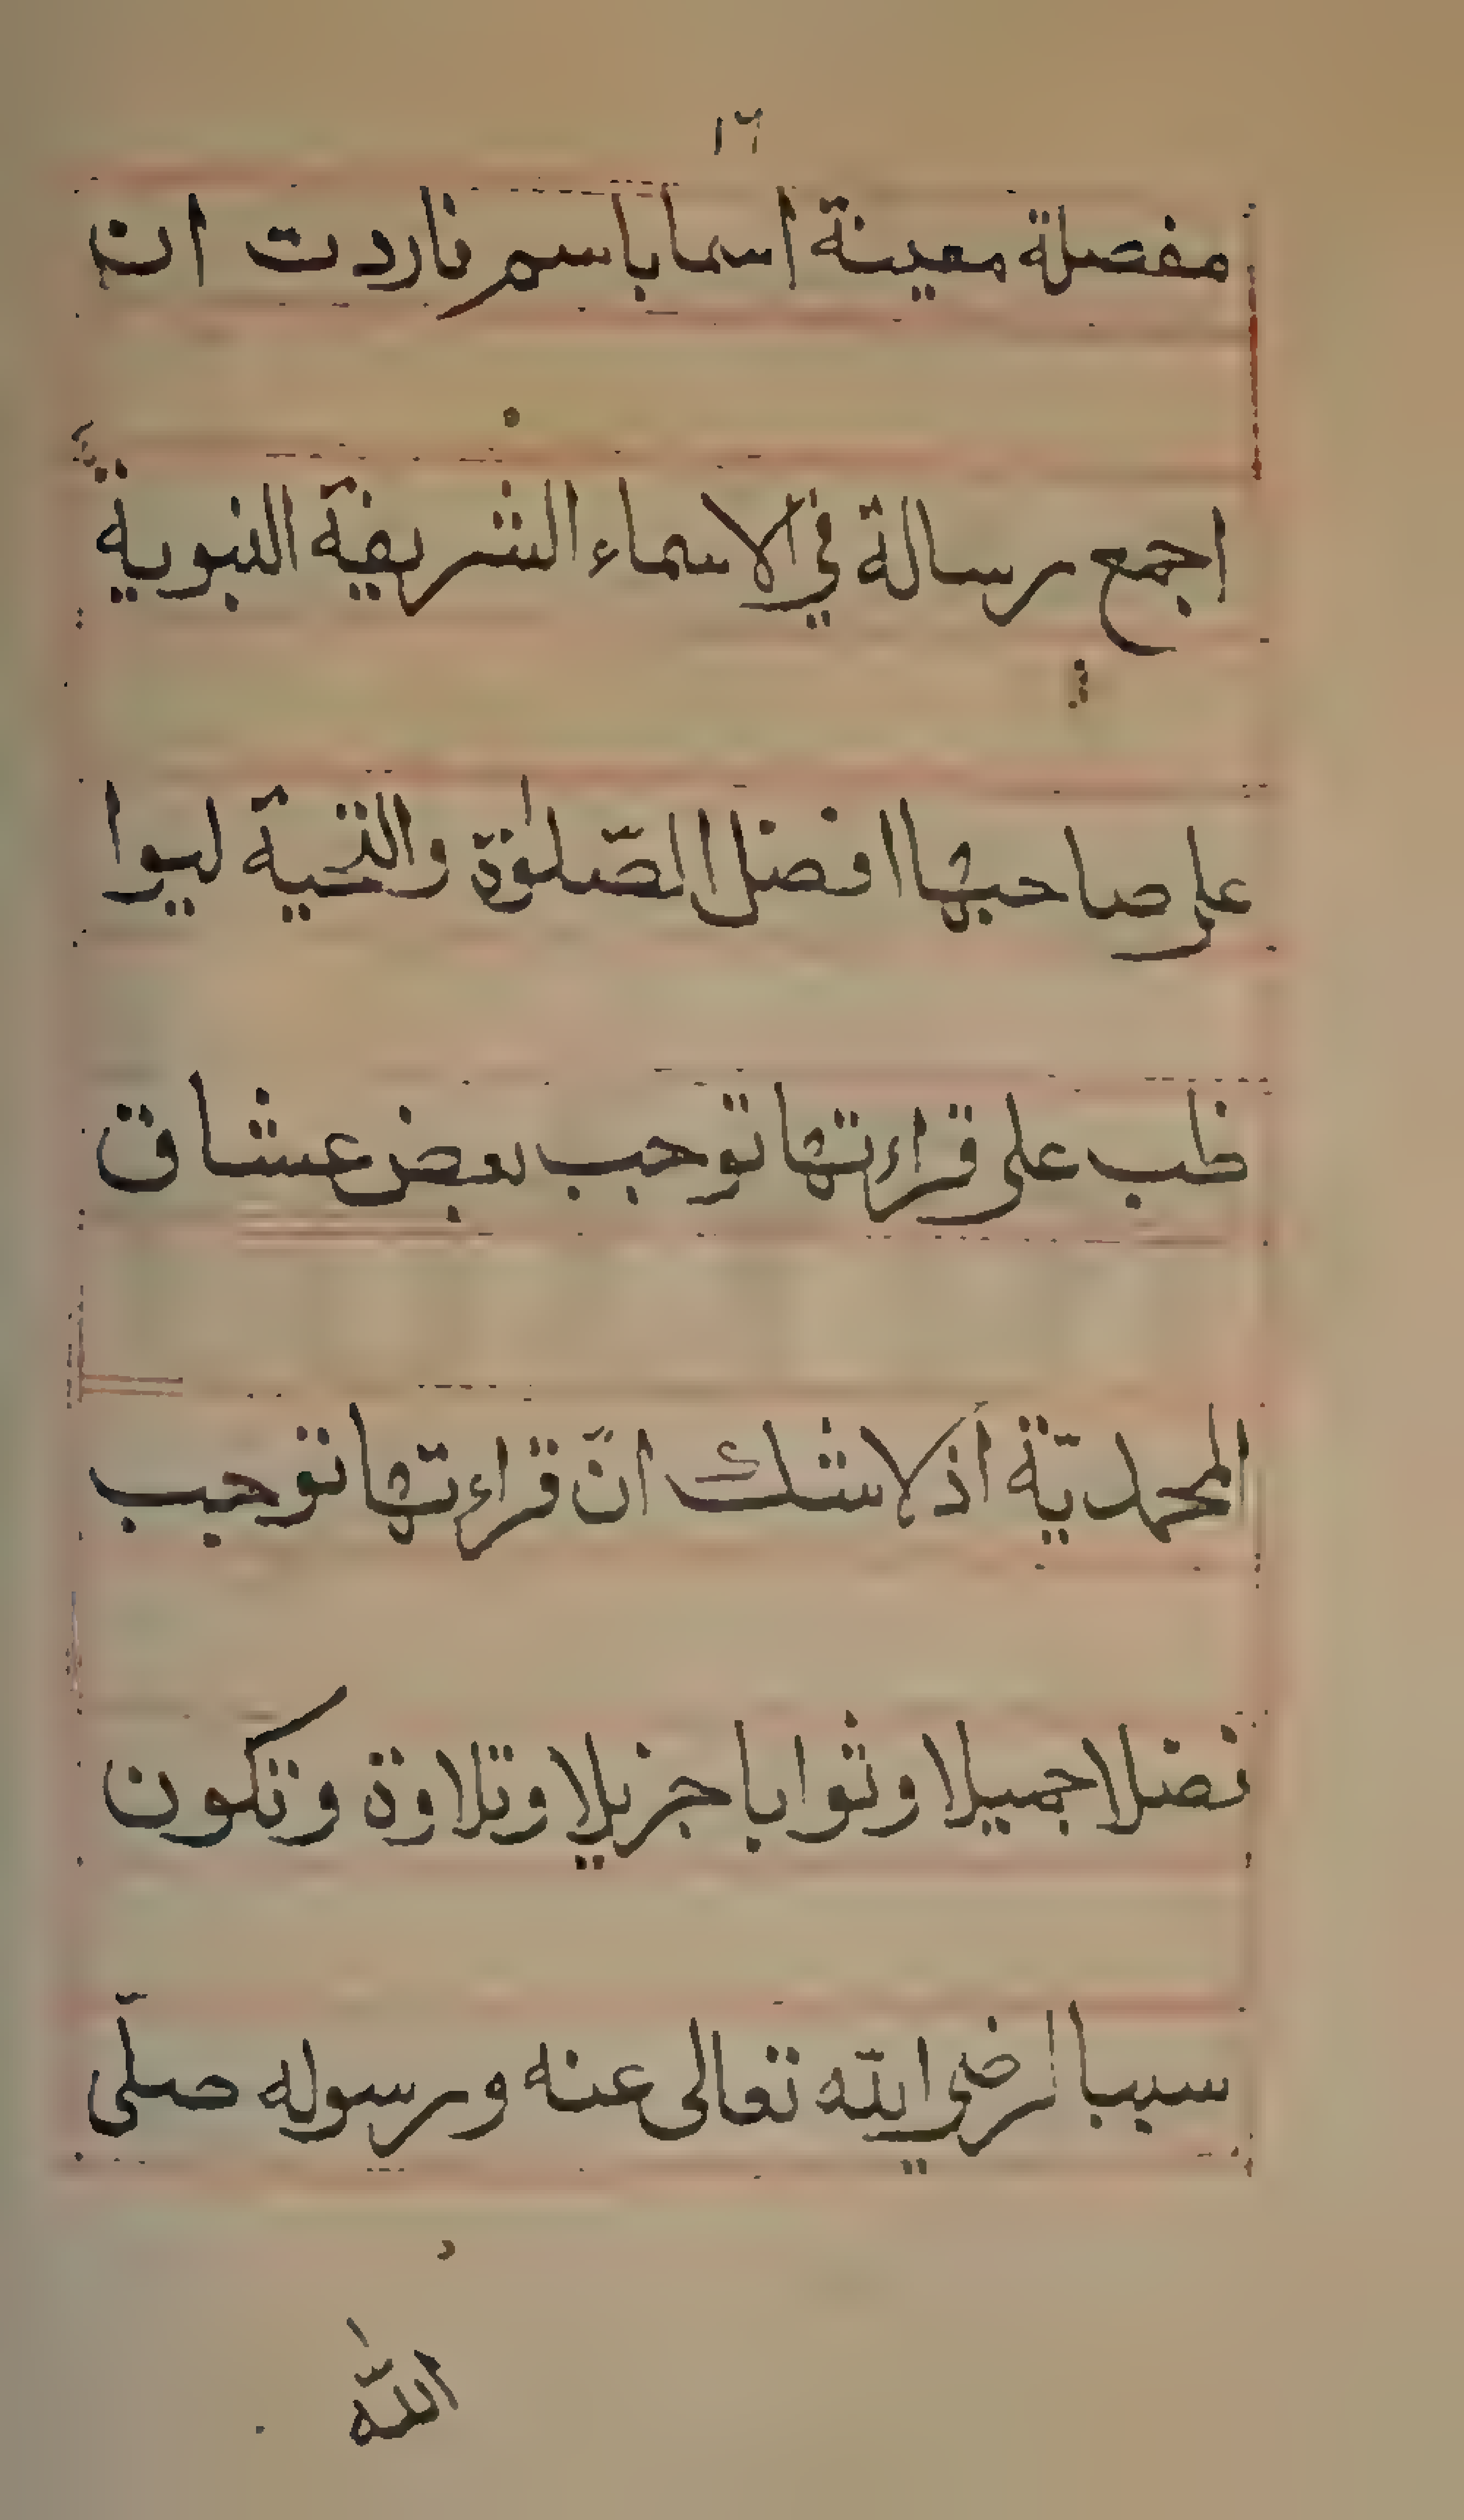 ١٦
مفصلة معينة اسما باسم فاردت ان
اجمع رسالة في الاسماء الشريفة النبوية
على صاحبها افضل الصّلوٰة والتحية ليوا
ظب على قراءتها توحب بعض عشاق
المحمديّة اذ لا شك انّ قراءتها توجب
فضلا جميلا وثوابا جزيلا وتلاوة وتكون
سببا لرضى الله تعالى عنه ورسوله صلّى
الله